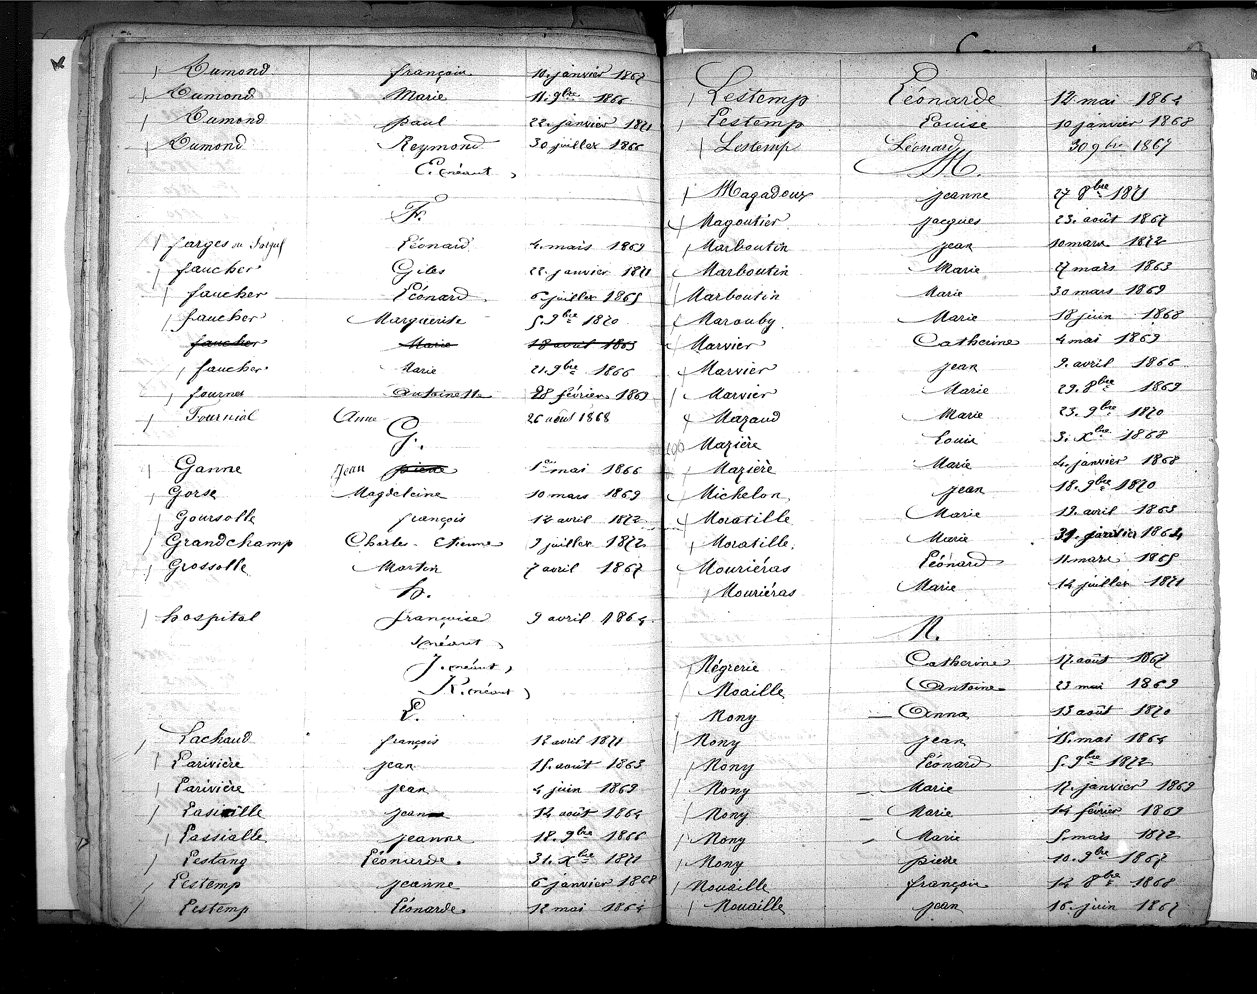 Dumond françois 10. janvier 1867
Dumond Marie 11. 9bre 1866
Dumond paul 22. janvier 1871
Dumond Reymond 30 juillet 1866
E. (néant)
F.
farges ou Léonard 4. mars 1869
faucher Giles 22. janvier 1871
faucher Léonard 6 juillet 1865
faucher Marguerite 5. 9bre 1870
faucher Marie 18 avril 1863
faucher Marie 21. 9bre 1866
fournet Antoinette 28 février 1869
Fournial Anne 26 août 1868
G.
Ganne Jean pierre 1er mai 1866
Gorse Magdeleine 10 mars 1869
Goursolle françois 12 avril 1872
Grandchamp Charles Etienne 9 juillet 1872
Grossolle Martin 7 avril 1867
h.
hospital françoise 9 avril 1864
I néant
J. (néant)
K. (néant)
L.
Lachaud françois 12 avril 1871
Larivière jean 15. août 1863
Larivière jean 4 juin 1869
jean 14 août 1864
Lassialle jeanne 18. 9bre 1866
Lestang Léonarde. 31. Xbre 1871
Lestemp jeanne 6 janvier 1868
Lestemp Léonarde 12 mai 1864
Lestemp Léonarde 12 mai 1864
Lestemp Louise 10 janvier 1868
Lestemp Léonard 30 9bre 1867
M.
Magadoux jeanne 27 8bre 1871
Magoutier jacques 23. août 1867
Marboutin jean 10 mars 1872
Marboutin Marie 27 mars 1863
Marboutin Marie 30 mars 1869
Marouby Marie 18 juin 1868
Marvier Catherine 4 mai 1869
Marvier jean 9. avril 1866
Marvier Marie 29. 8bre 1869
Mazaud Marie 23. 9bre 1870
Mazière Louis 3. Xbre 1868
Mazière Marie 4. janvier 1868
Michelon jean 18. 9bre 1870
Moratille Marie 13. avril 1863
Moratille Marie 31. janvier 1864
Mouriéras Léonard 11. mars 1865
Mouriéras Marie 14 juillet 1871
N.
Négrerie Catherine 17. août 1867
Noaille Antoine 23 mai 1869
Nony Anna 13 août 1870
Nony jean 15. mai 1864
Nony Léonard 5. 9bre 1872
Nony Marie 17. janvier 1869
Nony Marie 14 février 1869
Nony Marie 5. mars 1872
Nony pierre 10. 9bre 1867
Nouaille françois 14 8bre 1868
Nouaille jean 16. juin 1867